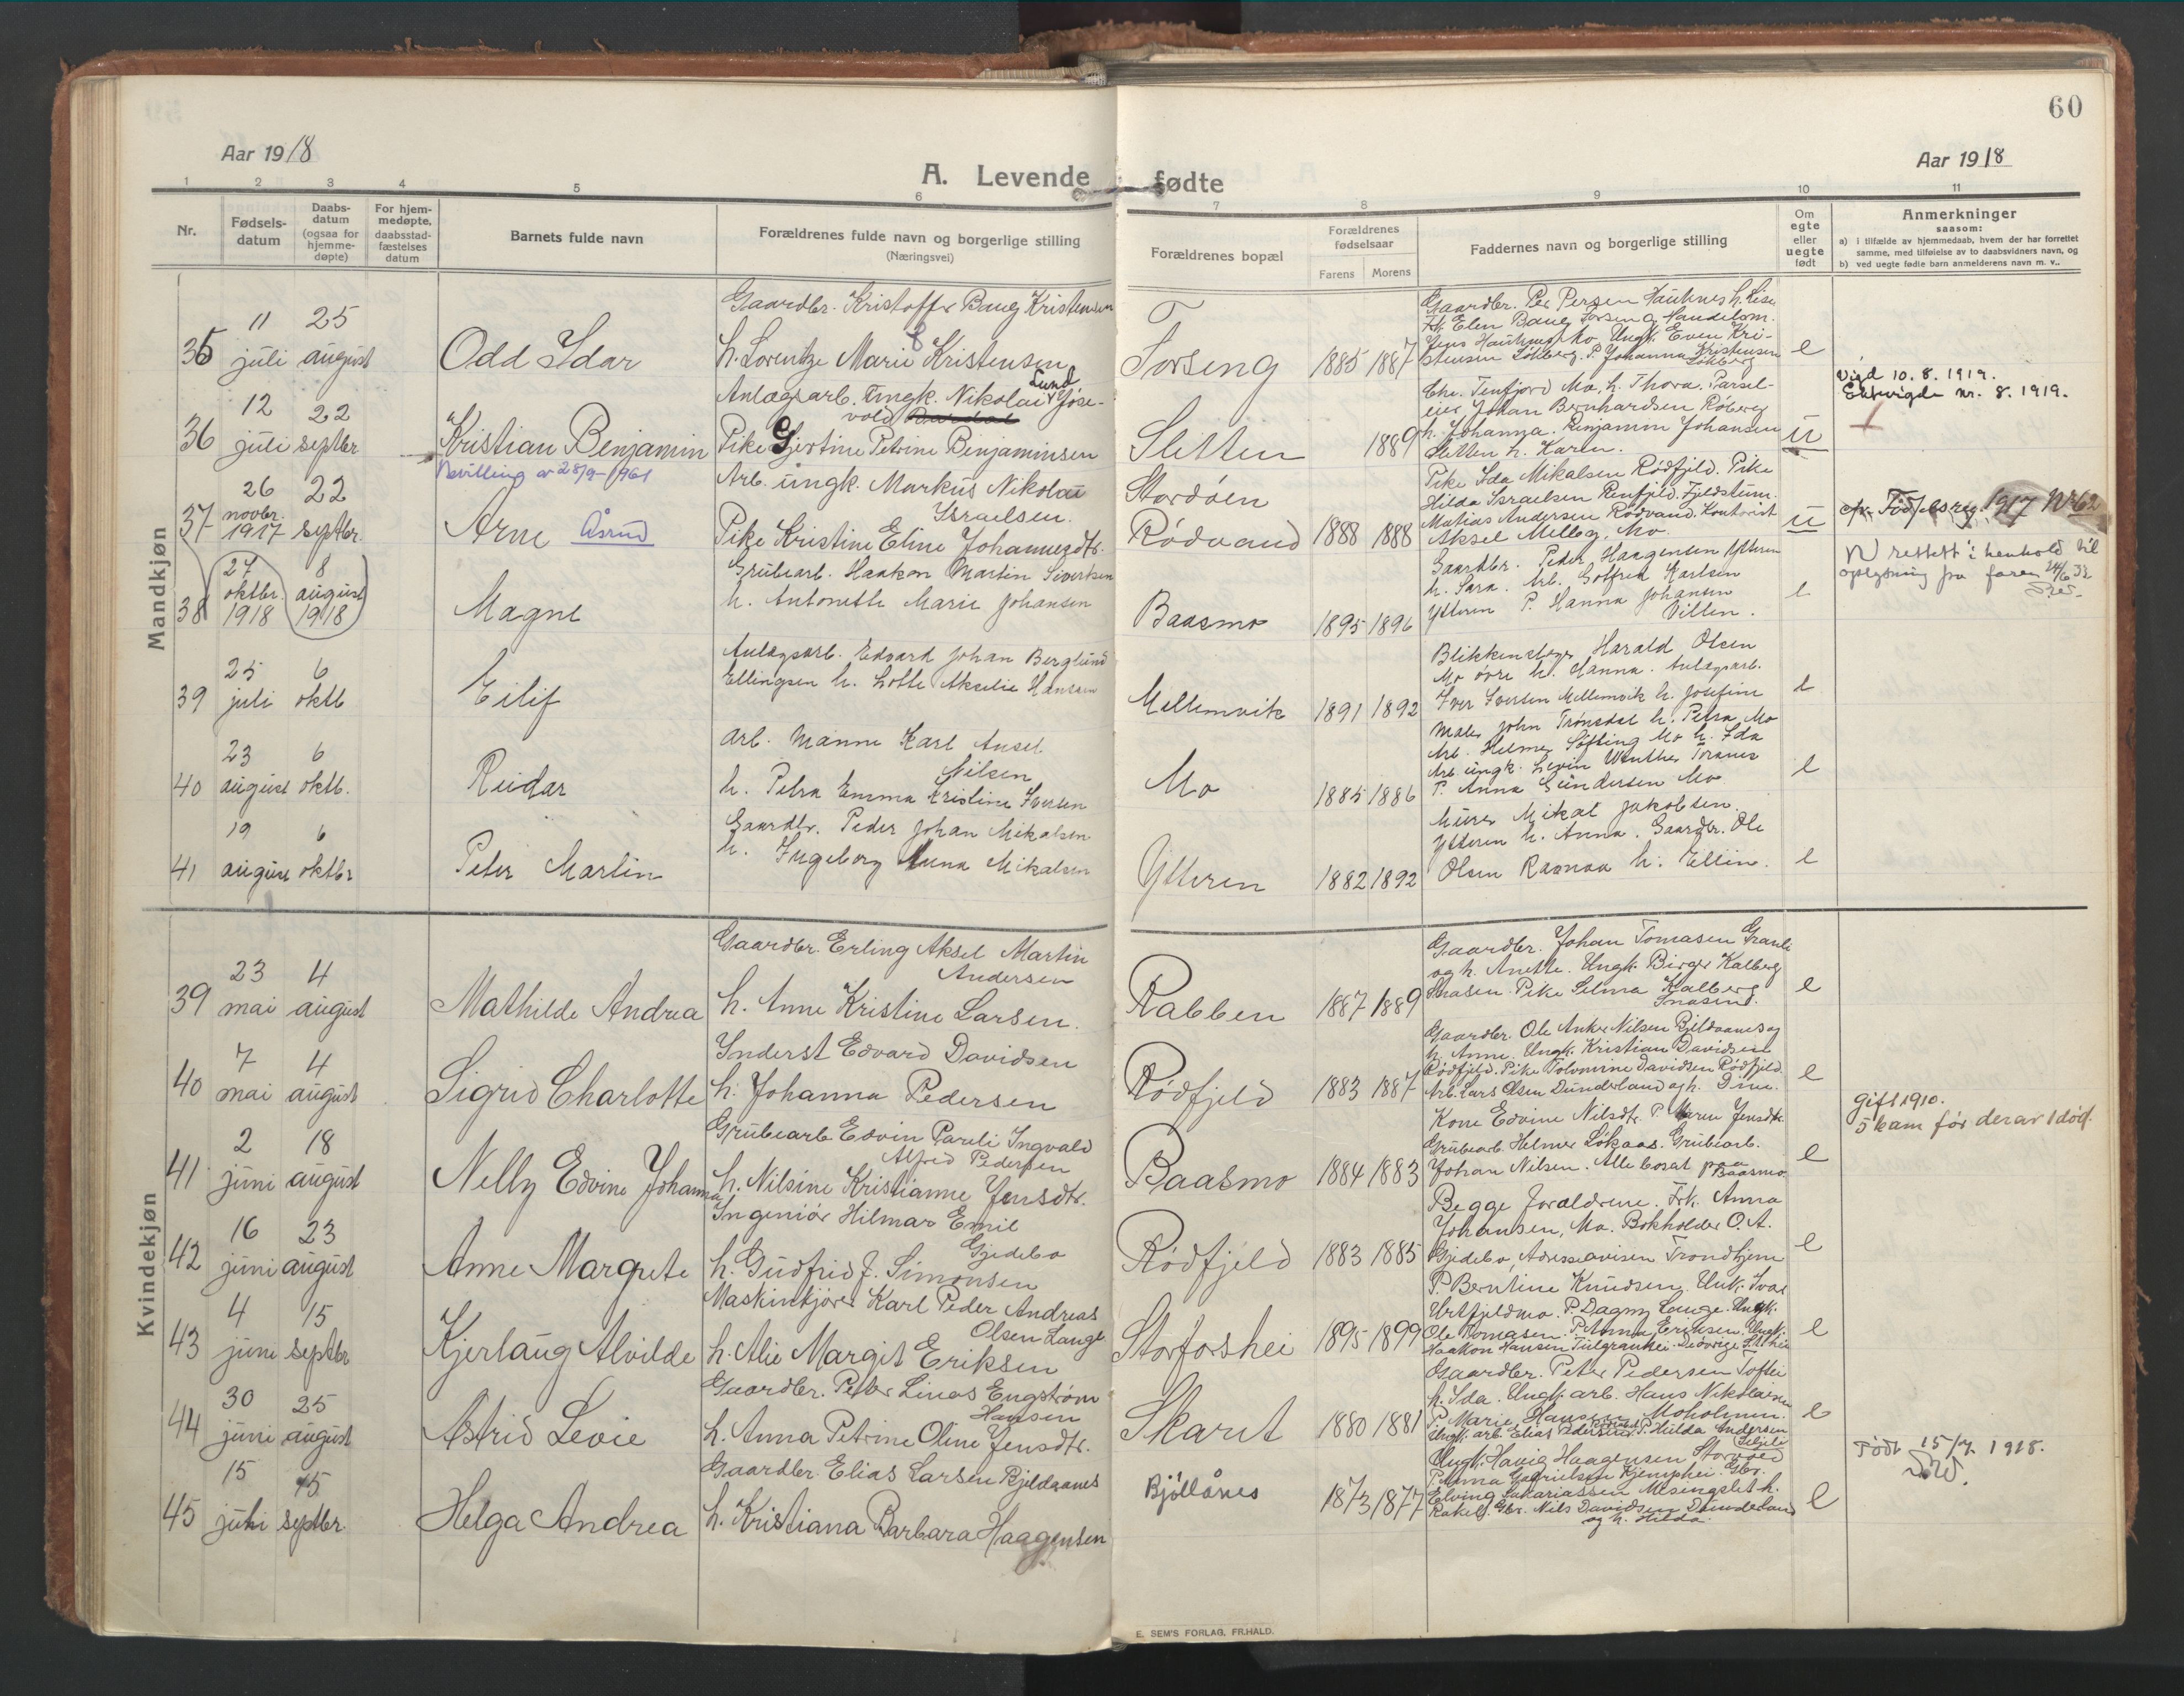 60
Aar 1918
Aar 1918
A. Levende fødte
1 2 3 4 5 6 7 8 9 10 11
Nr.
Fødsels-datum
Daabs-datum (ogsaa for hjemme-døpte)
For hjem-medøpte, daabsstad-fæstelses datum
Barnets fulde navn
Forældrenes fulde navn og borgerlige stilling
(Næringsvei)
Forældrenes bopæl
Forældrenes fødselsaar
Farens Morens
Faddernes navn og borgerlige stilling
Om egte eller uegte født
Anmerkninger
saasom:
a) i tilfælde av hjemmedaab, hvem der har forrettet
samme, med tilføielse av to daabsvidners navn, og
b) ved uegte fødte barn anmelderens navn m. v..
Mandkjøn
35
11 juli
25 august
Odd Idar
Gaardbr. Kristoffer Baug Kristensen
h. Lorentze Marie Kristensen
Forseng
1885 1887
Gaardbr. Per Persen Hauknes h. Lise
Frk. Elen Baug Forseng Handelsm.
Jens Hauknes, Mo, Ungk. Even Kri-
stensen Løkberg. P. Johanna Kristensen
Løkberg
e
36
12 juli
22 septbr
Kristian Benjamin
Bevilling av 28/9-1961
Anlægsarb. Ungk. Nikolai Lund Jose-
vold
Pike Gjertine Petrine Benjaminsen
Sletten
1889
Chr. Tenfjord Mo, h. Thora. Parsel-
eier Johan Bernhardsen Røberg
h. Johanna. Benjamin Johansen
Sletten h. Karen.
u
Vigd 10.8.1919.
Ektevigde nr. 8. 1919.
37
26 novbr. 1917
22 septbr.
Arne Åsrud
Arb. ungk. Markus Nikolai
Israelsen.
Pike Kristine Eline Johannesdtr.
Stordøen
Rødvand
1888 1888
Pike Ida Mikalsen Rødfjeld. Pike
Hilda Israelsen Renfjeld. Fjeldstum.
Mathias Andersen Rødvand. Kontorist
Aksel Melbg, Mo.
u
cfr. Fødselsreg. 1917 Nr 62
38
27 oktbr. 1918
8 august 1918
Magne
Grubearb. Haakon Martin Sivertsen
h. Antonette Marie Johansen
Baasmo
1895 1896
Gaardbr. Peder Haagensen Ytteren
h. Sara. Arb. Gotfred Karlsen
Ytteren P. Hanna Johansen
Villen.
e
N rettet i henhold til
oplysning fra faren 24/6 32
39
25 juli
6 oktb
Eilif
Anlægsarb. Edvard Johan Berglund
Ellingsen h. Lotte Akselie Hansen
Mellemvik
1891 1892
Blikkenslager Harald Olsen
Mo øvre h. Hanna. Anlægsarb.
Iver Iversen Mellemvik h. Josefine
Maler John Trønsdal h. Petra Mo
e
40
23 august
6 oktb.
Reidar
Arb. Manne Karl Ansel
Nilsen
h. Petra Emma Kristine Iversen
Mo
1885 1886
Arb. Helmer Søfting Mo h. Ida
Arb. ungk. Levin Winther Toranes
P. Anna Gundersen Mo
e
41
19 august
6 oktbr
Peter Martin
Gaardbr. Peder Johan Mikalsen
h. Ingeborg Anna Mikalsen
Ytteren
1882 1892
Murer Mikal Jakobsen.
Ytteren h. Anna. Gaardbr. Ole
Olsen Ramnaa h. Ellin.
e
Kvindekjøn
39
23 mai
4 august
Mathilde Andrea
Gaardbr. Erling Aksel Martin
Andersen
h. Anne Kristine Larsen.
Rabben
1887 1889
Gaardbr. Johan Tomasen Granli
og h. Anette. Ungk. Birger Kalberg
Snasen Pike Selma Kalberg
Snasen.
e
40
7 mai
4 august
Sigrid Charlotte
Ynderst Edvard Davidsen
h. Johanna Pedersen
Rødfjeld
1883 1887
Gaardbr. Ole Anker Nilsen Bjeldaanes og
h. Anne. Ungk. Kristian Davidsen
Rødfjeld. Pike Tolvmine Davidsen Rødfjeld.
Arb. Lars Olsen Dunderland og h. Dine.
e
41
2 juni
18 august
Nelly Edvine Johanna
Grubearb. Edvin Pareli Ingvald
Alfred Pedersen
h. Nilsine Kristianne Jensdtr.
Baasmo
1884 1883
Kone Edvine Nilsdtr. P. Maren Jensdtr.
Grubearb. Helmer Løkaas. Grubearb.
Johan Nilsen. Alle bosat paa Baasmo.
e
Gift 1910.
5 barn før derav 1 død.
42
16 juni
23 august
Anne Margrete
Ingeniør Hilmar Emil
Gjedebo
h. Gudfrid J. Simonsen
Rødfjeld
1883 1885
Begge forældrene. Frk. Anna
Johansen, Mo. Bokholder O. A.
Gjedebo, Adresseavisen Trondhjem
e
43
4 juni
15 septbr
Kjerlaug Alvilde
Maskinkjører Karl Peder Andreas
Olsen Lange
h. Alie Margit Eriksen
Storforshei
1895 1899
P. Berntine Knudsen. Unk. Ivar
Urtfjeldmo. P. Dagny Lange. Ungk.
Ole Tomasen. P. Anna Eriksen. Ungk.
Haakon Hansen
e
44
30 juni
25 august
Astrid Levie
Gaardbr. Peter Linas Engstrøm
Hansen
h. Anna Petrine Oline Jensdtr.
Skarst
1880 1881
Gaardbr. Peter Pedersen Toftei
h. Ida. Ungk. arb. Hans Nikolaisen
P. Marie Hansen Moholmen.
Ungk. arb. Elias Pedersen P. Hilda Andersen
e
45
15 juni
15 septbr.
Helga Andrea
Gaardbr. Elias Larsen Bjeldaanes
h. Kristiana Barbara Haagensen
Bjöllånes
1873 1877
Ungk. Havig Haagensen Storvold
P. Anna Gabrielsen Kjemphei. Gbr.
Elving Sakariassen Messingslet h.
Rakel. Gbr. Nils Davidsen Dunderland
og h. Hilda.
e
Født 15/7. 1918.
E. SEM'S FORLAG, FR.HALD.